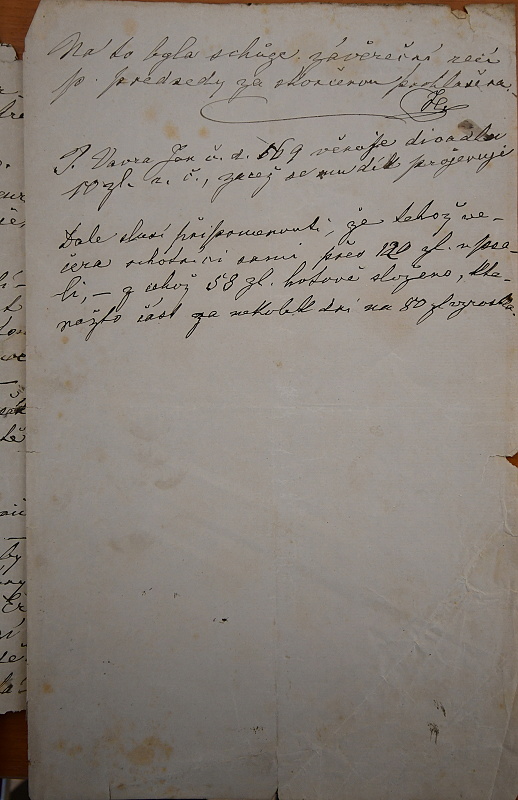 Na to byla schůze závěreční řečí
p. předsedy za skončenou prohlášena.
P. Vavra Jan č. d. 169 věnuje divadlu
10 zl. r. č., začež se mu dík projevuje
Dale sluší připomenouti, že tehož ve-
čera ochotníci sami přes 120 zl. upsa-
li, – z čehož 58 zl. hotově složeno, kte-
rážto část za několik dní na 80 zl vzrostla.